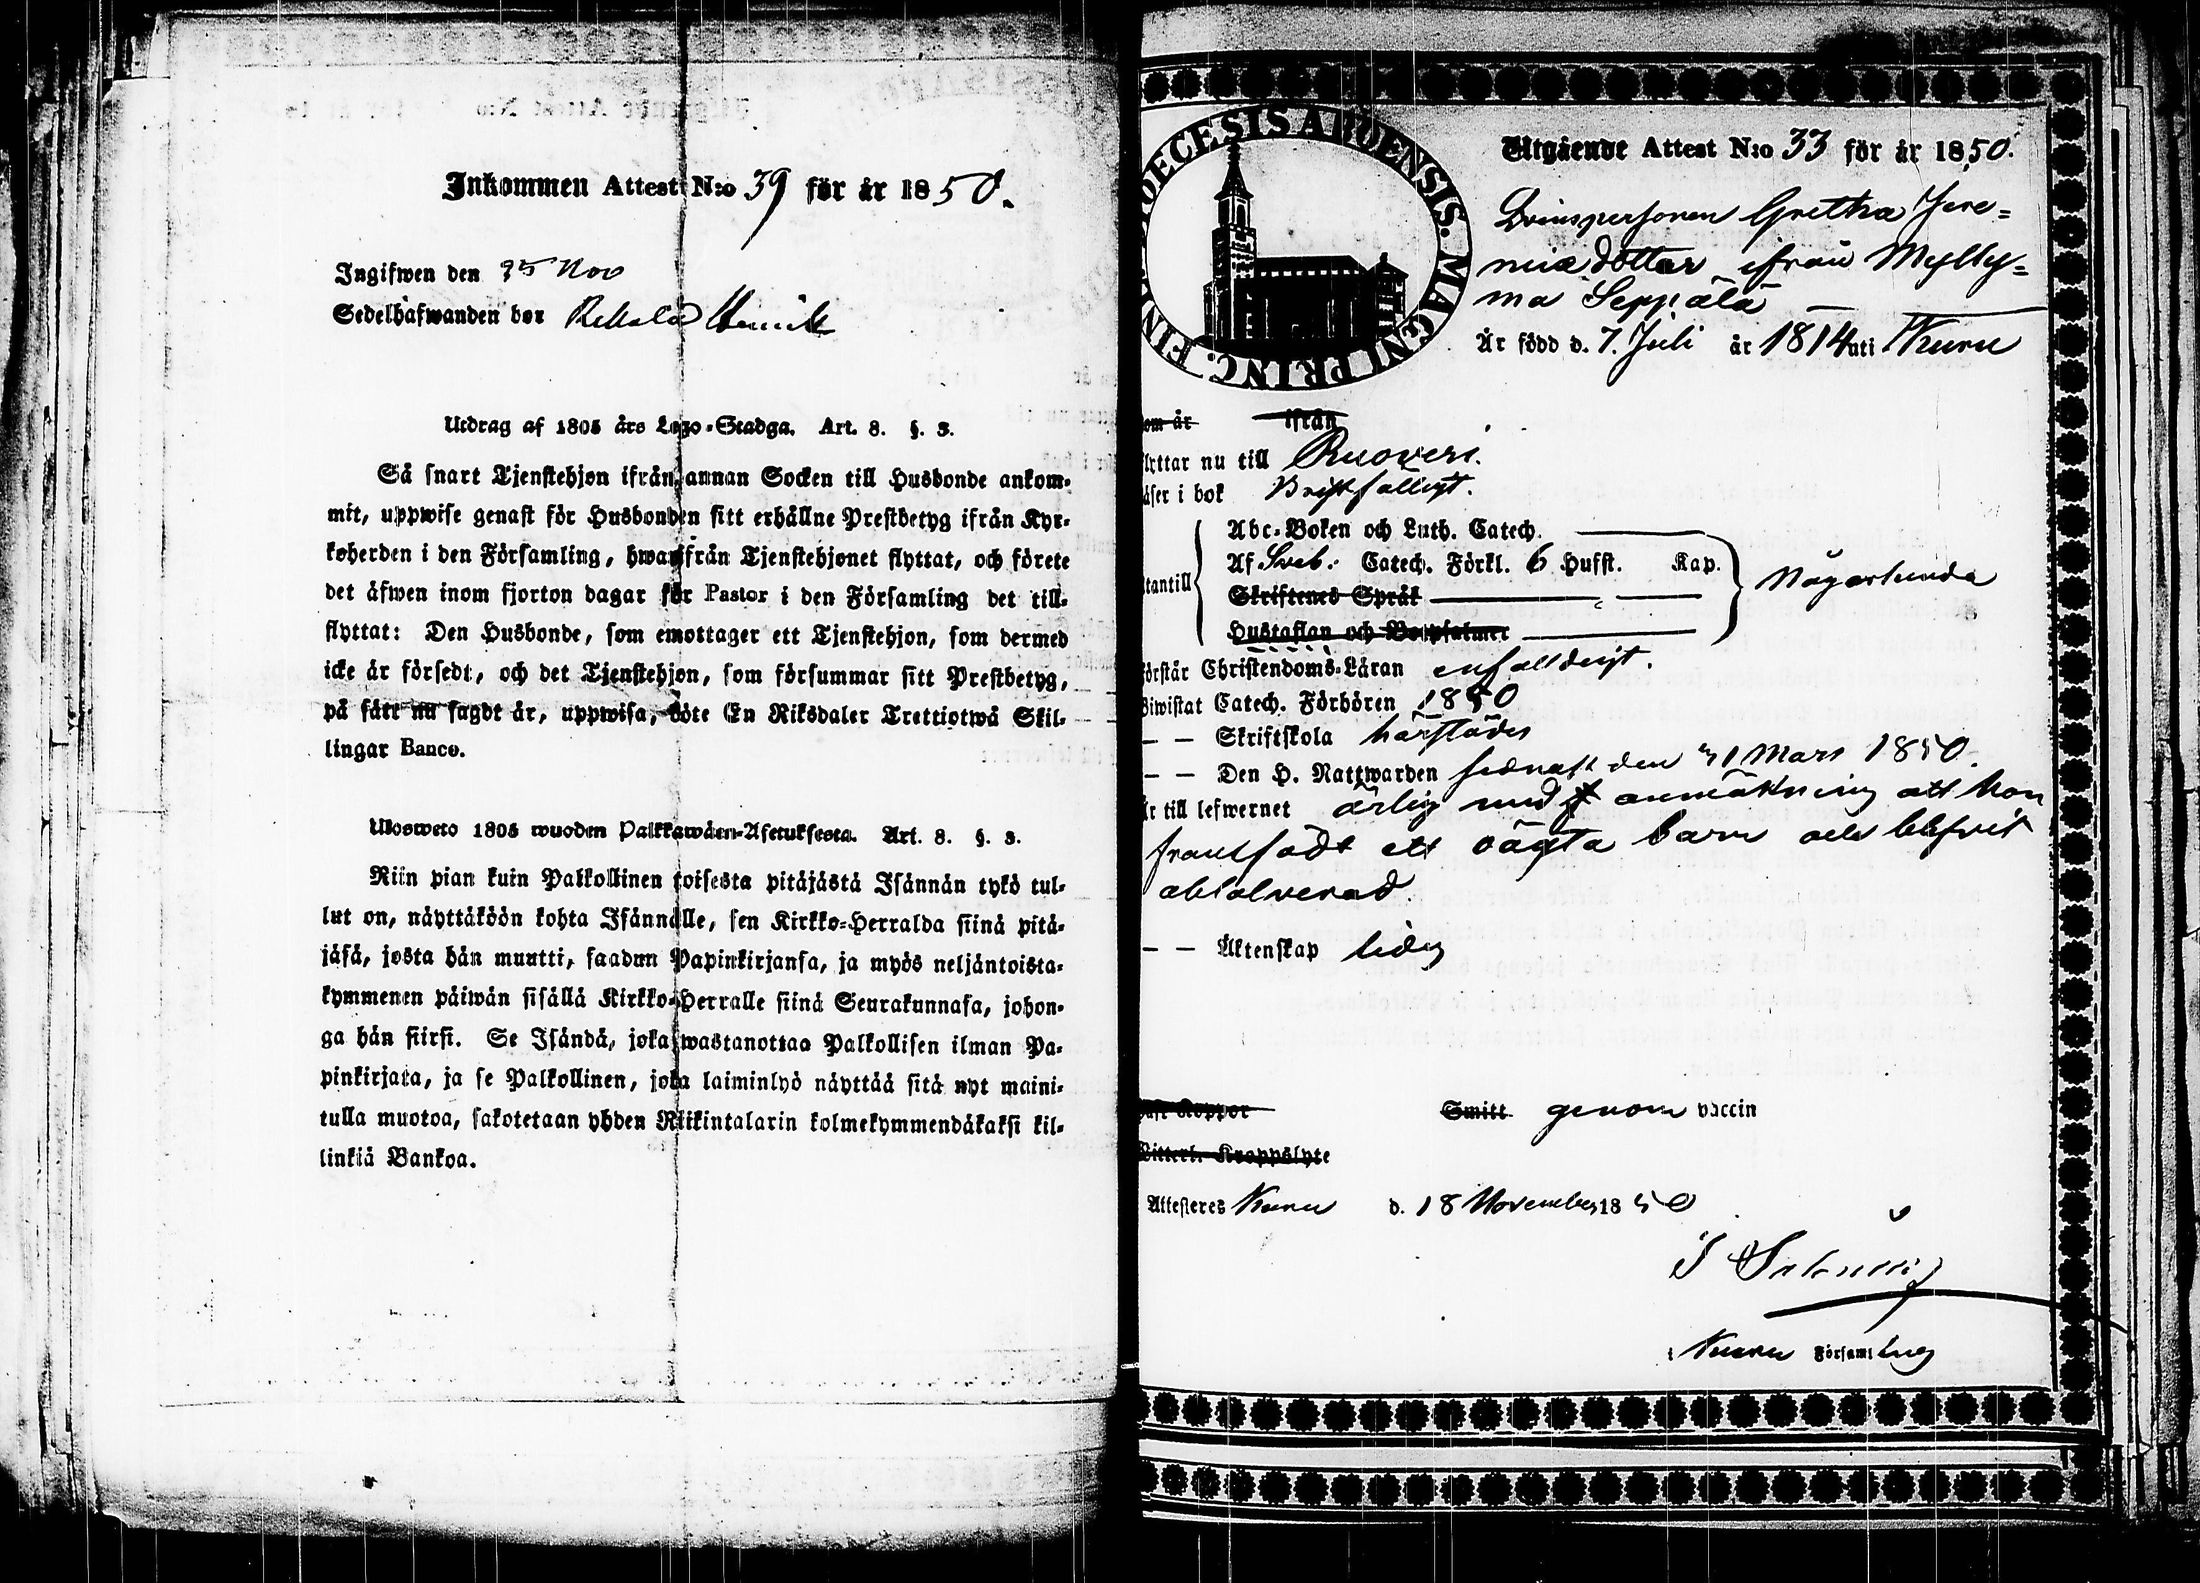 Inkommen Attest N:o 39 för år 1850.
Ingifwen den 25 Nov
Sedelhafwanden bor
Utdrag af 1805 års Lego-Stadga. Art. 8. §. 3.
Så snart Tjenstehjon ifrån annan Socken till Husbonde ankom-
mit, uppwise genast för Husbonden sitt erhållne Prestbetyg ifrån Kyr-
koherden i den Församling, hwarifrån Tjenstehjonet flyttat, och förete
det äfwen inom fjorton dagar för Pastor i den Församling det till-
flyttat: Den Husbonde, som emottager ett Tjenstehjon, som dermed
icke är försedt, och det Tjenstehjon, som försummar sitt Prestbetyg,
på sätt nu sagdt är, uppwisa, böte En Riksdaler Trettiotwå Skil-
lingar Banco.
Ulosweto 1805 wuoden Palkkawäen-Asetuksesta. Art. 8. §. 3.
Niin pian kuin Palkollinen toisesta pitäjästä Isännän tykö tul-
lut on, näyttäköön kohta Isännälle, sen Kirkko-Herralda siinä pitä-
jäsä, josta hän muutti, saadun Papinkirjansa, ja myös neljäntoista-
kymmenen päiwän sisällä Kirkko-Herralle siinä Seurakunnasa, johon-
ga hän siirsi. Se Isändä, joka wastanottaa Palkollisen ilman Pa-
pinkirjata, ja se Palkollinen, joka laiminlyö näyttää sitä nyt maini-
tulla muotoa, sakotetaan yhden Riikintalarin kolmekymmendäkaksi kil-
linkiä Bankoa.
DIOECESIS ABOENSIS. MAGNI PRINC. FIN
Utgående Attest N:o 33 för år 1850.
Drengspersonen Gretha Jere=
miædotter ifrån Mylly=
ma Seppälä
Är född d. 7. Juli år 1814 uti Kuru
om är ifrån
lyttar nu till Ruovesi.
äser i bok Bristfälligt.
Abc-Boken och Luth. Catech.
Af Sveb. Catech. Förkl. 6 Hufst. Kap.
tantill
Någorlunda
Skriftenes Språk
Hustaflan och Botpsalmer
örstår Christendoms-Läran enfalldigt.
Biwistat Catech. Förhören 1850
— — Skriftskola härstädes
— — Den H. Nattwarden sednast den 31 Mars 1850.
r till lefwernet ärlig med anmärkning att hon
framfödt ett oägta barn och blifvit
absolverad.
— — Äktenskap ledig
Koppor Smitt genom vaccin
Witterl. Kroppslyte
Attesteres Kuru d. 18 November 1850
i Kuru Församling